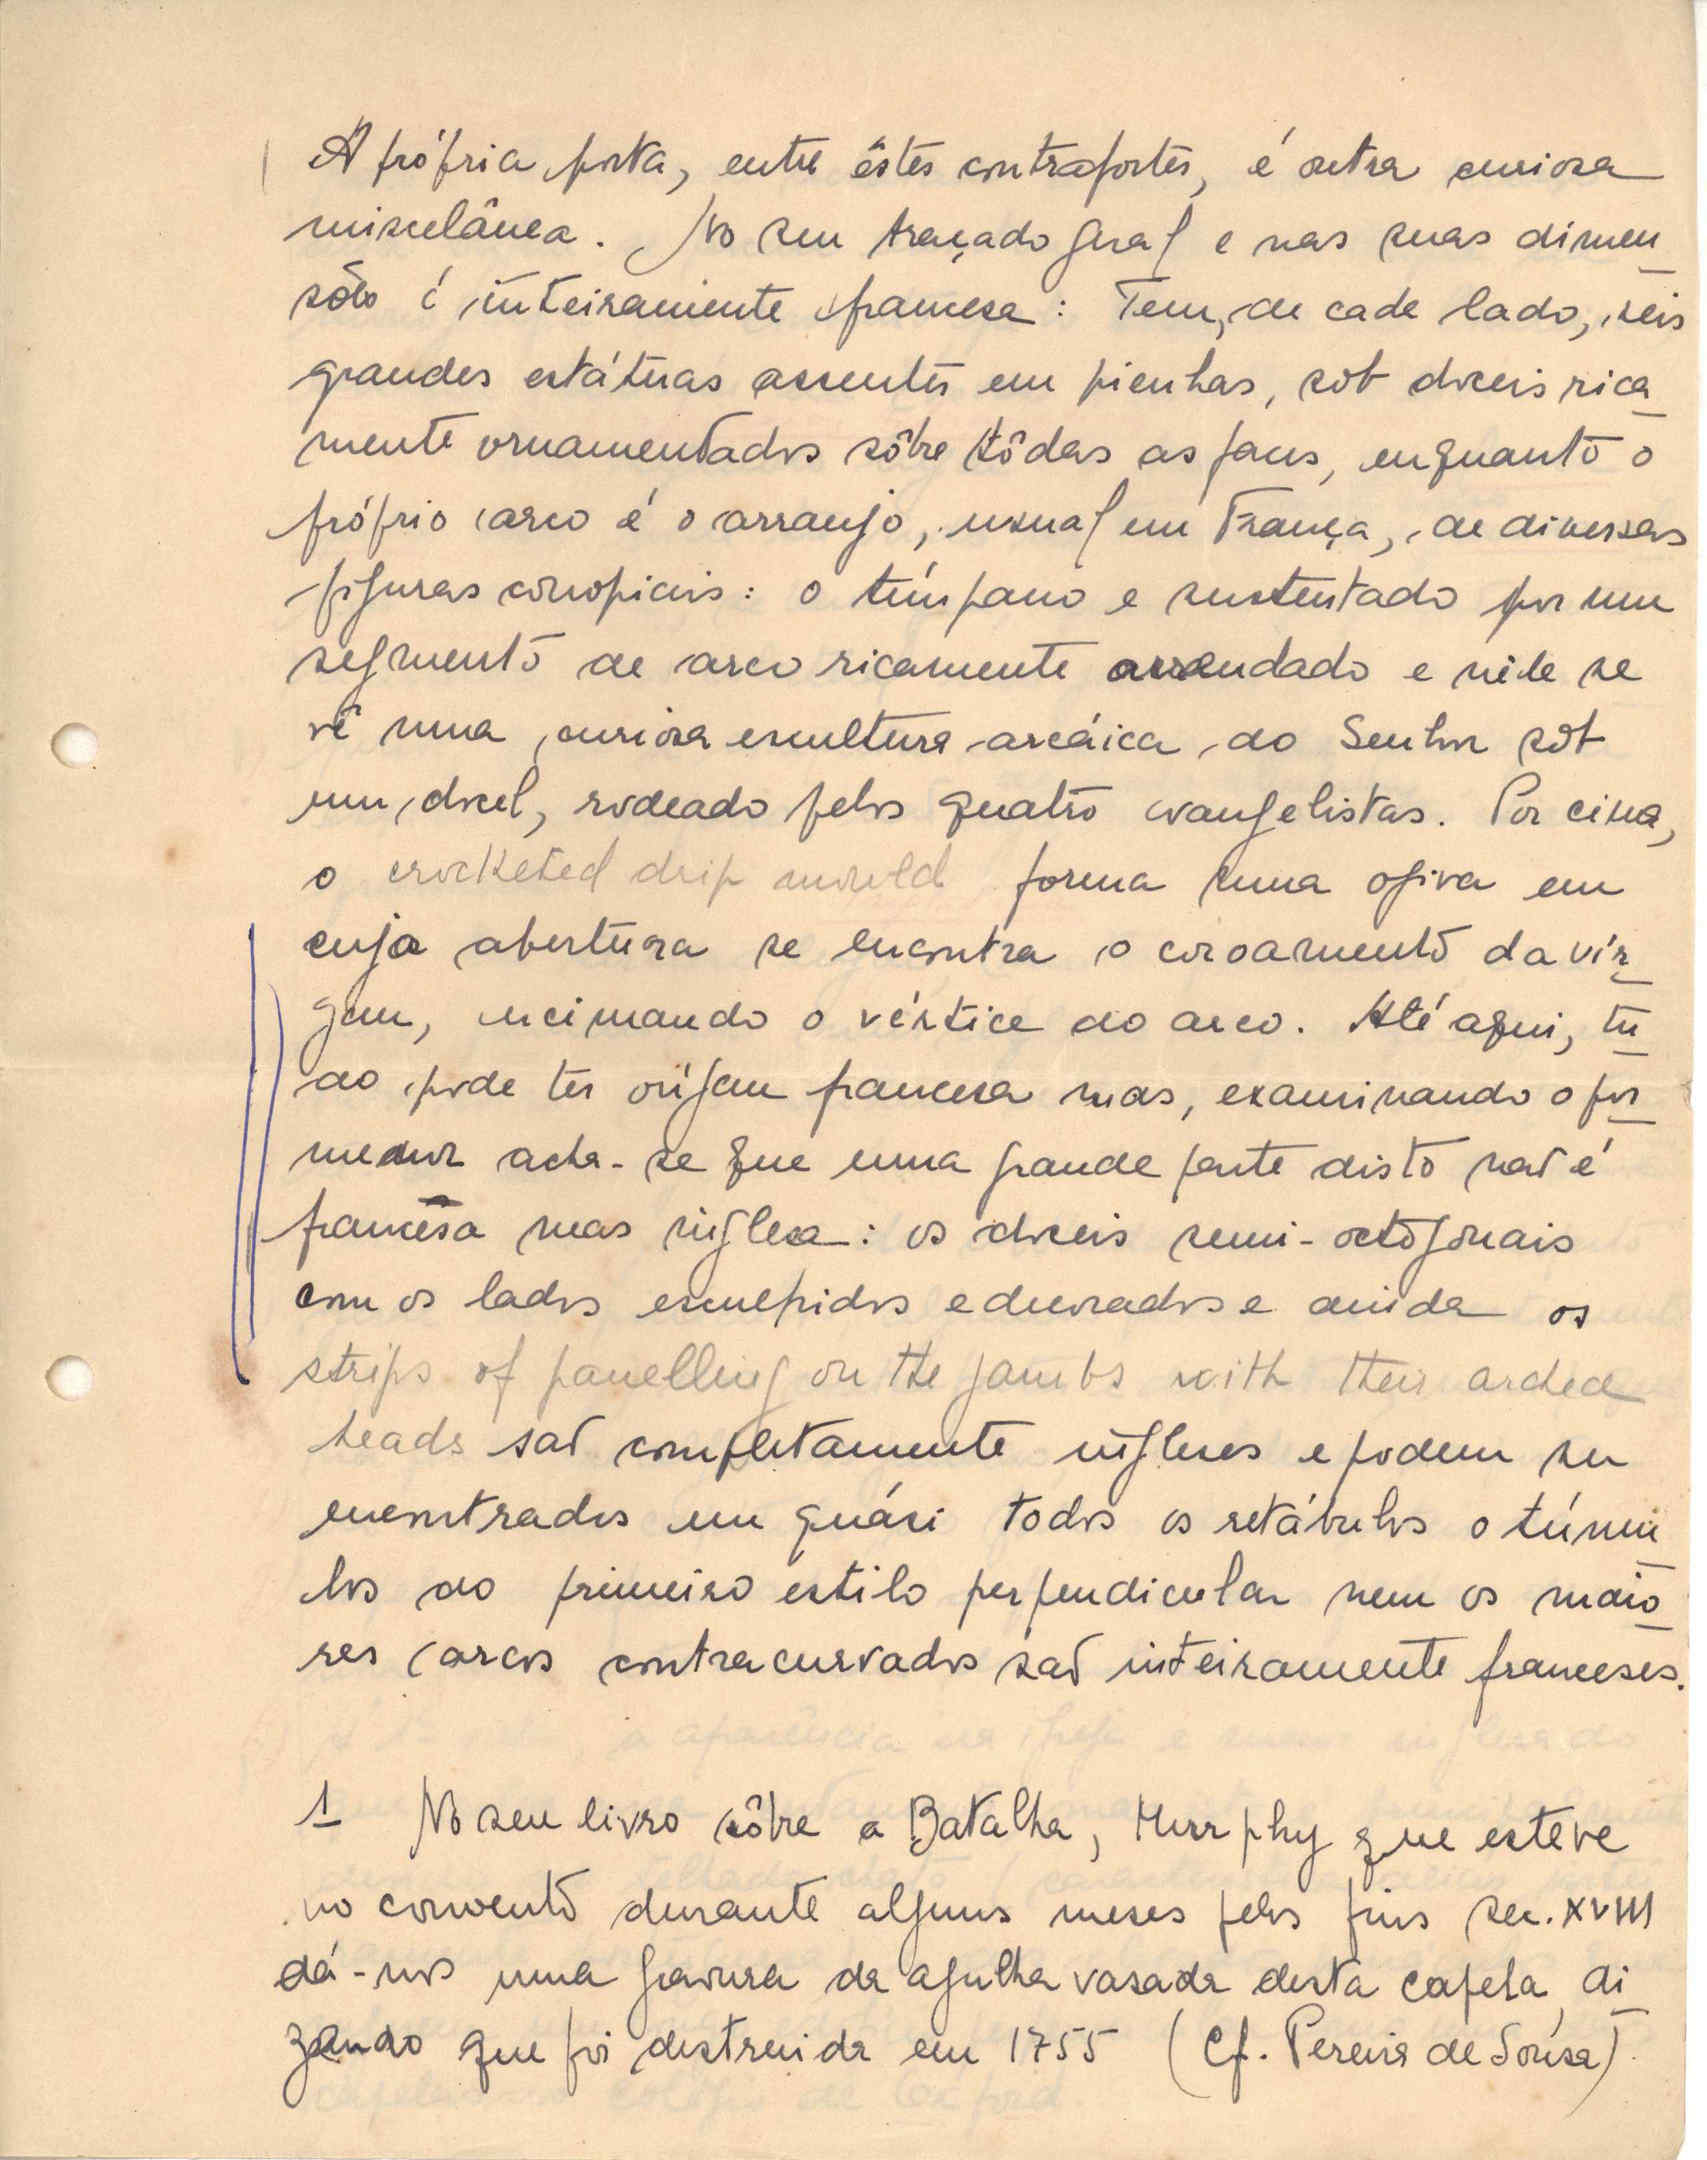 A própria porta, entre êstes contrafortes, é outra curiosa
miscelânea. No seu traçado geral e nas suas dimen
sões é inteiramente francesa: Tem, de cada lado, seis
grandes estátuas assentes em pienhas, sob doceis rica
mente ornamentados sôbre tôdas as faces, enquanto o
próprio arco é o arranjo, usual em França, de diversas
figuras conopiais: o tímpano e sustentado por um
segmento de arco ricamente arrendado e nele se
vê uma curiosa escultura arcáica do Senhor sob
um docel, rodeado pelos quatro evangelistas. Por cima,
o crocketed drip mould forma uma ogiva em
cuja abertura se encontra o coroamento da vir
gem, encimando o vértice do arco. Até aqui, tu
do pode ter origem francesa mas, examinando o por
menor acha-se que uma grande parte disto não é
francesa mas inglesa: os doceis semi-octogonais
com os lados esculpidos e decorados e ainda os
strips of panelling on the jambs with their arched
heads são completamente ingleses e podem ser
encontrados em quási todos os retábulos o túmu
los do primeiro estilo perpendicular nem os maio
res arcos contracurvados são inteiramente franceses.
1 No seu livro sôbre a Batalha, Murphy que esteve
no convento durante alguns meses pelos fins sec. XVIII
dá-nos uma gravura da agulha vasada desta capela di
zendo que foi destruida em 1755 (Cf. Pereira de Sousa)